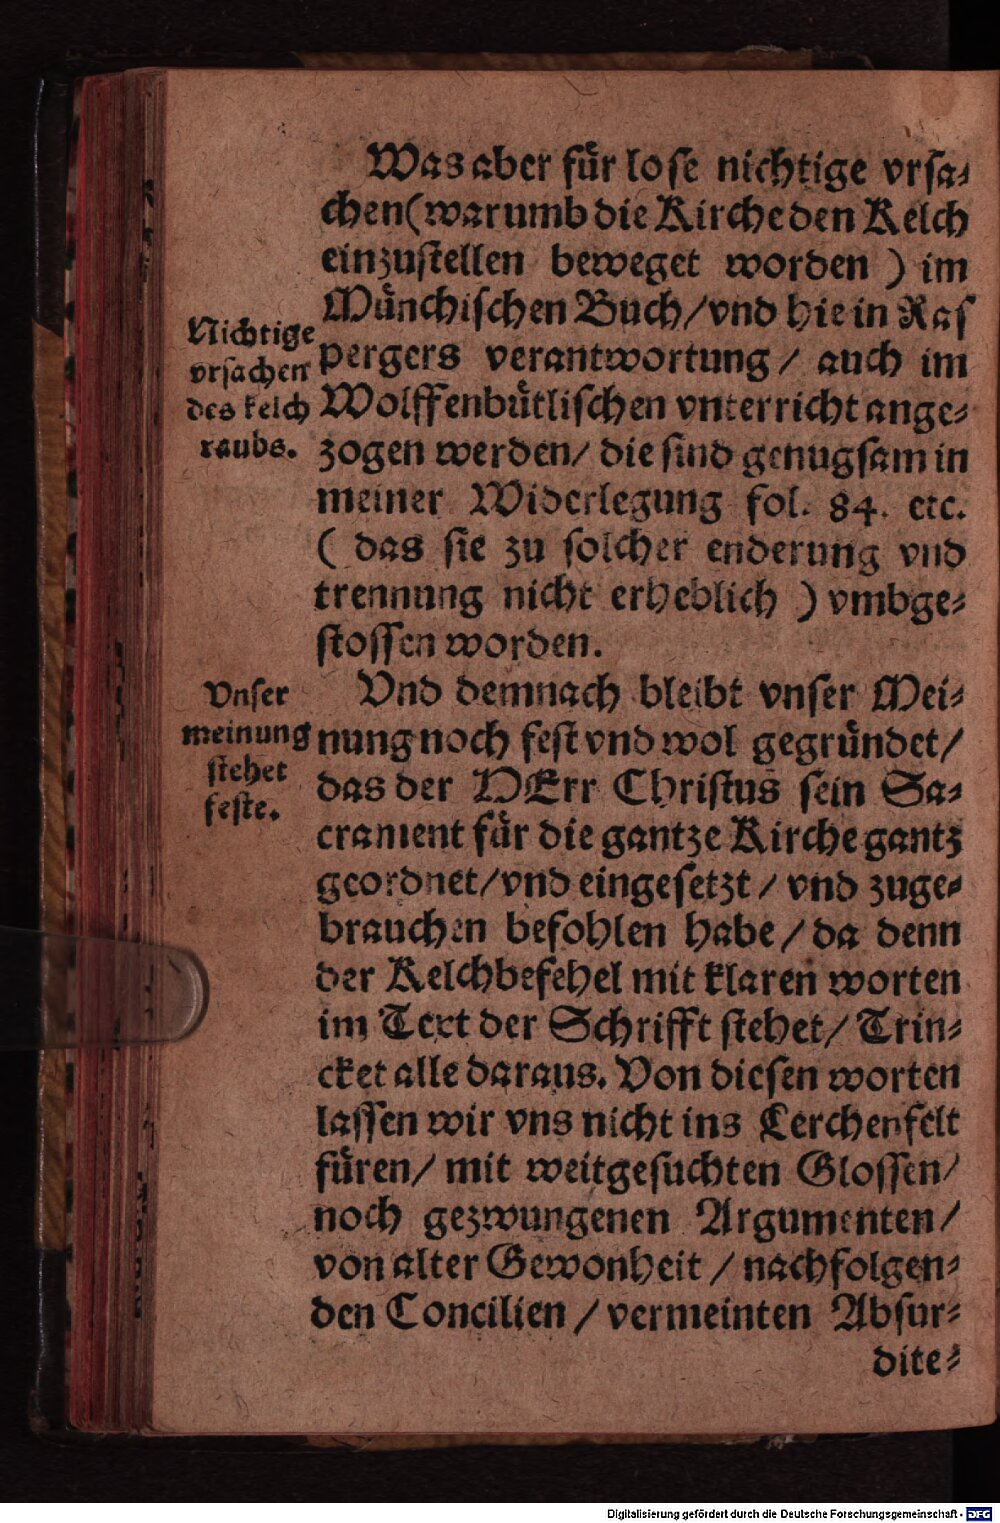 Was aber für lose nichtige vrsa⸗
chen (warumb die Kirche den Kelch
einzustellen beweget worden) im
Münchischen Buch/ vnd hie in Ras
pergers verantwortung/ auch im
Wolffenbütlischen vnterricht ange⸗
zogen werden/ die sind genugsam in
meiner Widerlegung fol. 84. etc.
(das sie zu solcher enderung vnd
trennung nicht erheblich) vmbge⸗
stossen worden.
Nichtige
vrsachen
des kelch
raubs.
Vnd demnach bleibt vnser Mei⸗
nung noch fest vnd wol gegründet/
das der HErr Christus sein Sa⸗
crament für die gantze Kirche gantz
geordnet/ vnd eingesetzt/ vnd zuge⸗
brauchen befohlen habe/ da denn
der Kelchbefehel mit klaren worten
im Text der Schrifft stehet/ Trin⸗
cket alle daraus. Von diesen worten
lassen wir vns nicht ins Lerchenfelt
füren/ mit weitgesuchten Glossen/
noch gezwungenen Argumenten/
von alter Gewonheit/ nachfolgen⸗
den Concilien/ vermeinten Absur⸗
dite⸗
Vnser
meinung
stehet
feste.
Digitalisierung gefördert durch die Deutsche Forschungsgemeinschaft - DFG